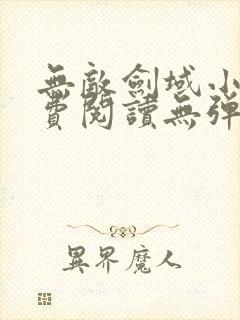 無敵劍域小
費閱讀無彈
異界魔人